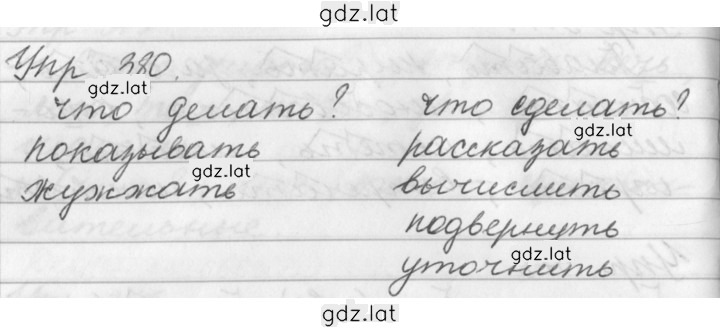 gdz.lat
Упр 380.
gdz.lat
что делать? что сделать?
gdz.lat
показывать рассказать
жужжать вычислить
gdz.lat
подвернуть
gdz.lat
уточнить
gdz.lat